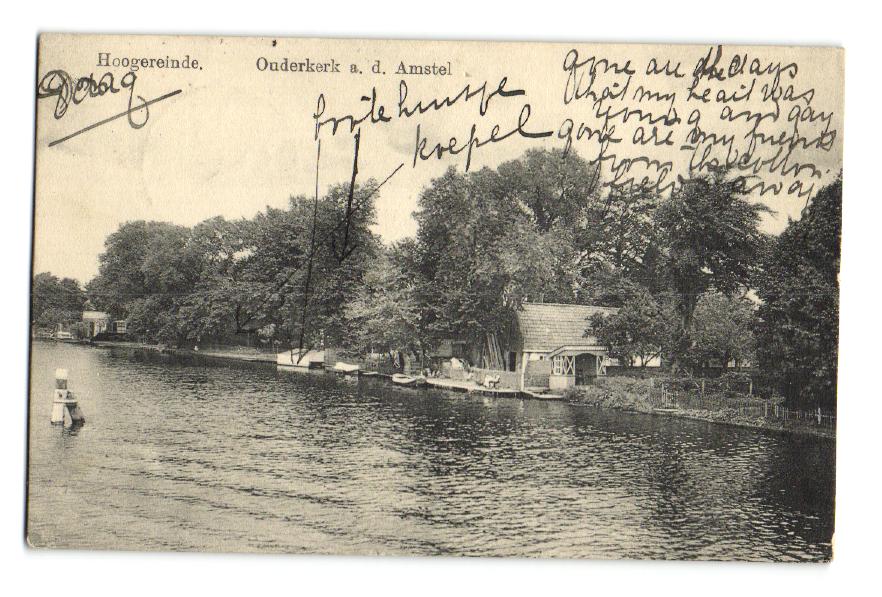 Hoogereinde.
Ouderkerk a. d. Amstel
Daag
huutje
koepel
gone are the days
that my heart was
young and gay
gone are my friends
from the cotton
fields away